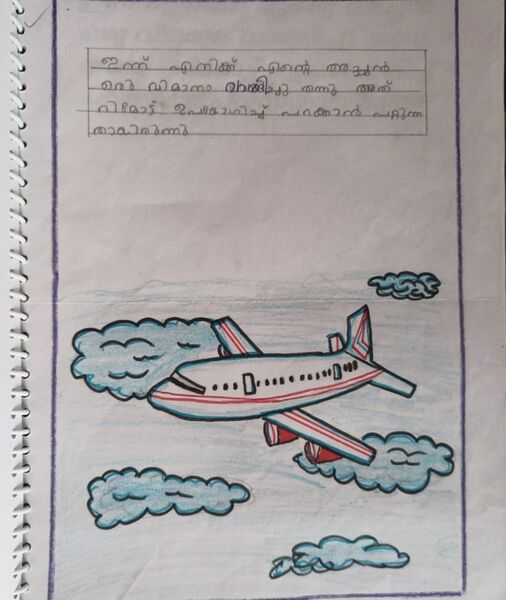 ഇന്ന് എനിക്ക് എന്റെ അച്ഛൻ
ഒരു വിമാനം വാങ്ങിച്ചു തന്നു അത്
റിമോട്ട് ഉപയോഗിച്ച് പറക്കാൻ പറ്റുന്ന
തായിരുന്നു